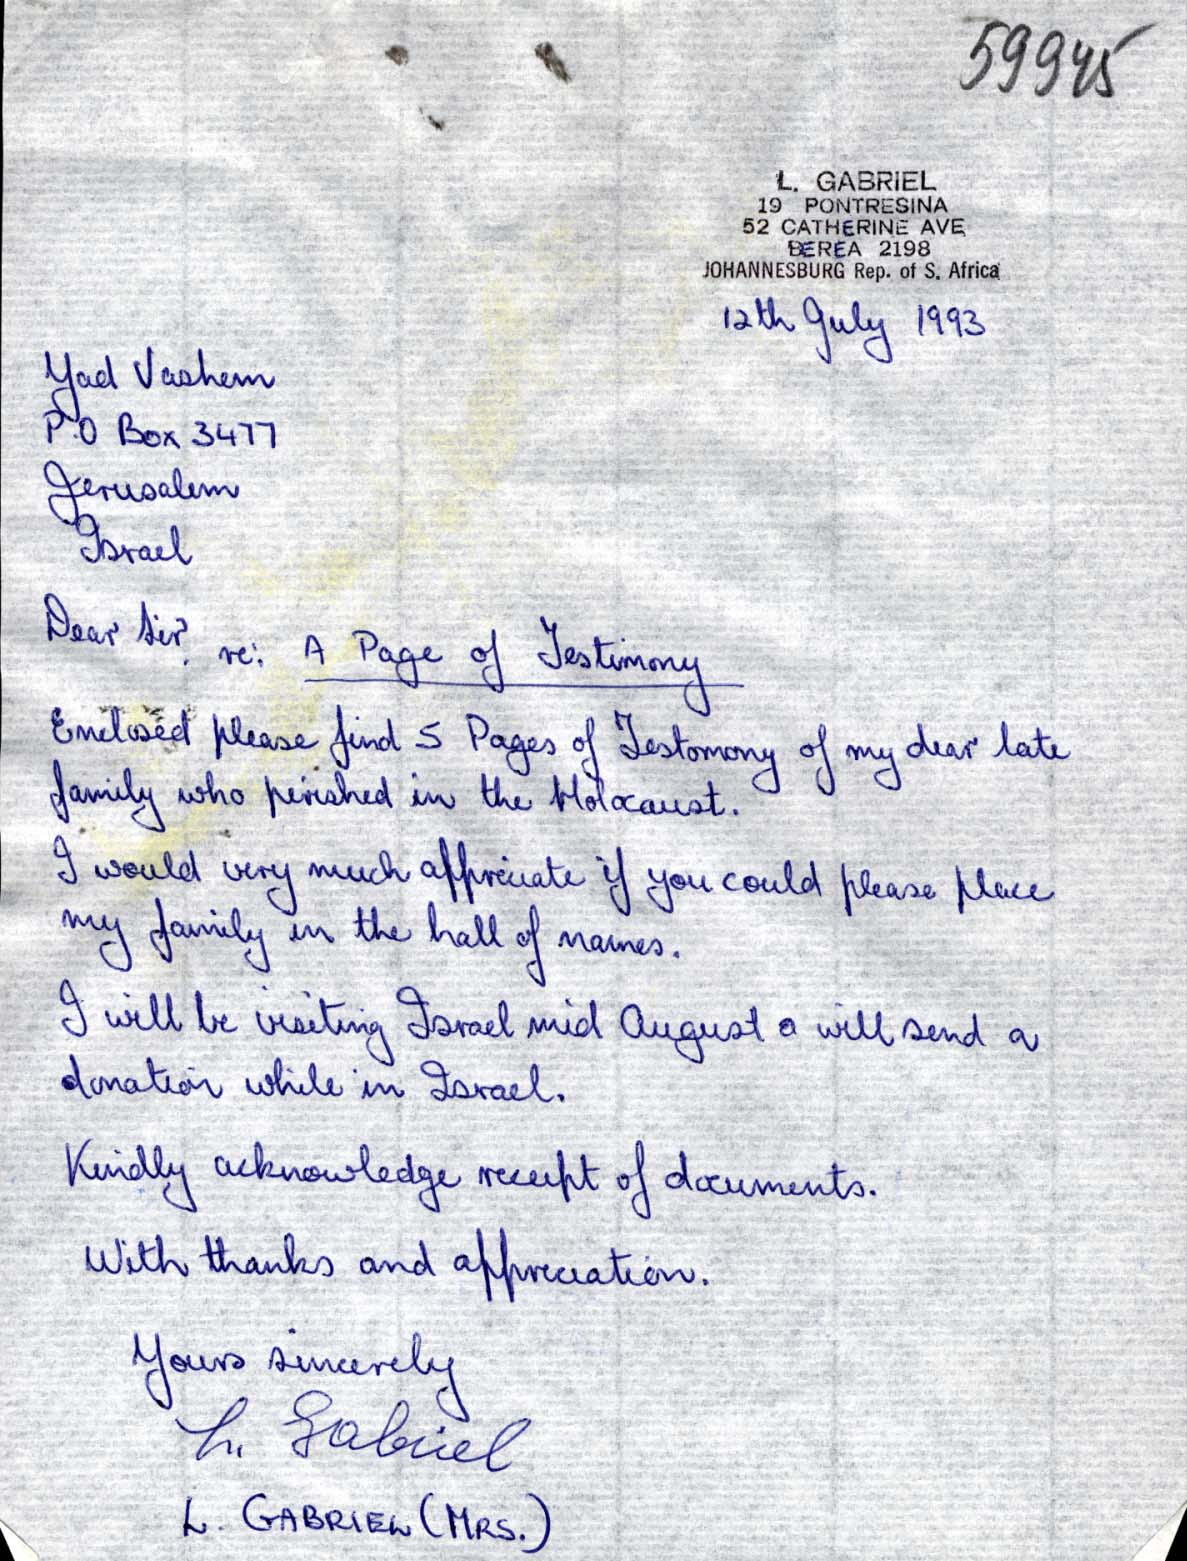 59945
L. GABRIEL
19 PONTRESINA
52 CATHERINE AVE
BEREA 2198
JOHANNESBURG Rep. of S. Africa
12th July 1993
Yad Vashem
P.O Box 3477
Jerusalem
Israel
Dear Sir,
re: A Page of Testimony
Enclosed please find 5 Pages of Testomony of my dear late
family who perished in the Holocaust.
I would very much appreciate if you could please place
my family in the hall of names.
I will be visiting Israel mid August a will send a
donation while in Israel.
Kindly acknowledge receipt of documents.
With thanks and appreciation.
Yours sincerely
L. Gabriel
L. GABRIEL (MRS.)